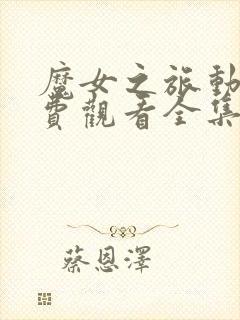 魔女之旅動
費觀看全集
蔡恩澤